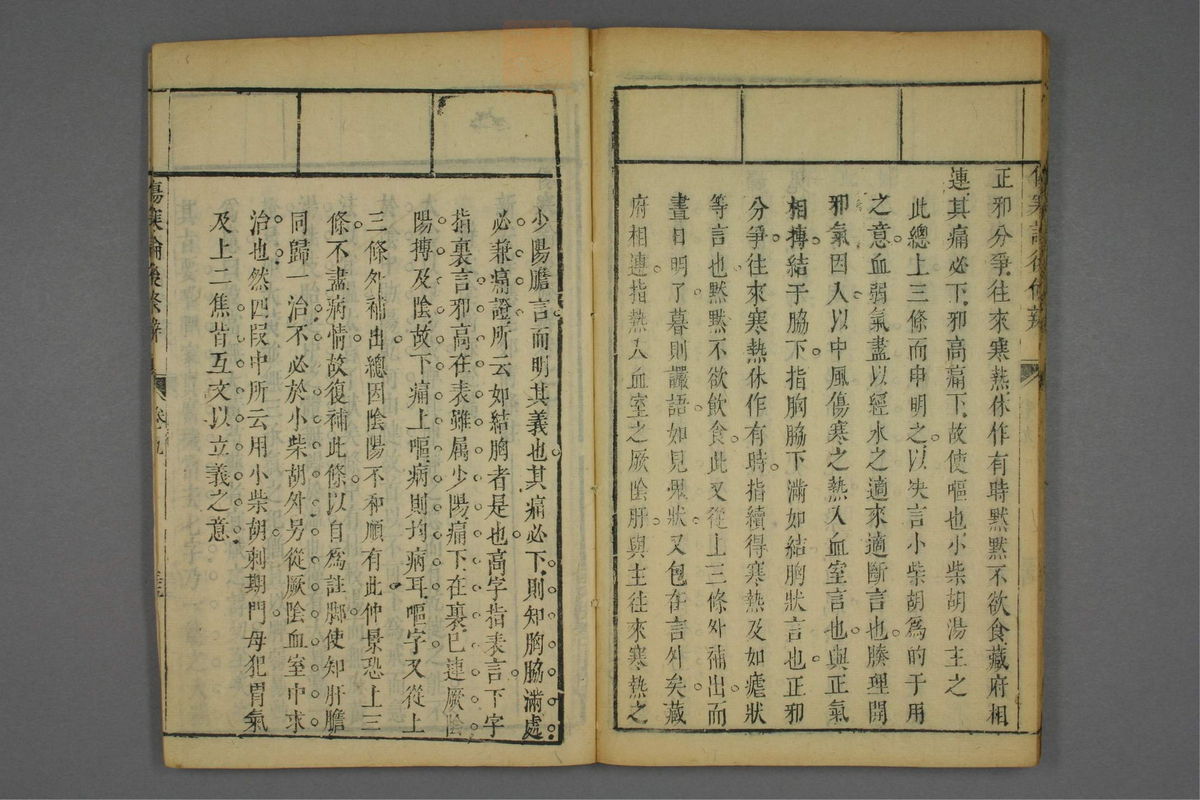 正邪分爭往來寒熱休作有時默默不欲食藏府相
連其痛必下邪高痛下故使嘔也小柴胡湯主之
此總上三條而申明之以決言小柴胡爲的于用
之意血弱氣盡以經水之適來適斷言也腠理開
邪氣因入以中風傷寒之熱入血室言也與正氣
相搏結于脇下指胸脇下滿如結胸狀言也正邪
分爭往來寒熱休作有時指續得寒熱及如瘧狀
等言也默默不欲飲食此又從上三條外補出而
晝日明了暮則讝語如見鬼狀又包在言外矣藏
府相連指熱入血室之厥陰肝與主往來寒熱之
少陽膽言而明其義也其痛必下則知胸脇滿處
必兼痛證所云如結胸者是也高字指表言下字
指裏言邪高在表雖属少陽痛下在裏已連厥陰
陽搏及陰故下痛上嘔病則均病耳嘔字又從上
三條外補出總因陰陽不和順有此仲景恐上三
條不盡病情故復補此條以自爲註脚使知肝膽
同歸一治不必於小柴胡外另從厥陰血室中求
治也然四段中所云用小柴胡刺期門毋犯胃氣
及上二焦皆互文以立義之意
傷寒論後條辨 卷九